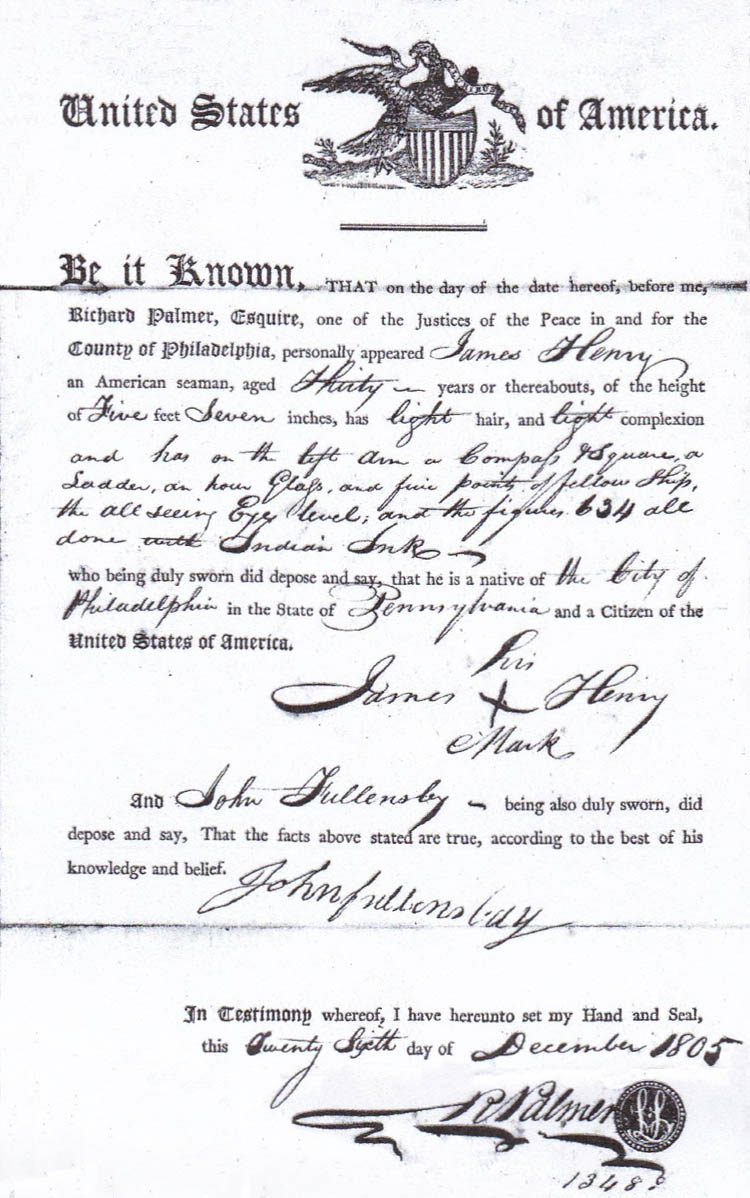 United States of America.
Be it Known, THAT on the day of the date hereof, before me,
Richard Palmer, Esquire, one of the Justices of the Peace in and for the
County of Philadelphia, personally appeared James Henry
an American seaman, aged Thirty years or thereabouts, of the height
of Five feet Seven inches, has light hair, and light complexion
and has on the left arm a Compass & Square, a
Ladder, an hour Glass, and five points of fellow Ship,
the all seeing Eye, level, and the figures 634 all
done with Indian Ink
who being duly sworn did depose and say, that he is a native of the City of
Philadelphia in the State of Pennsylvania and a Citizen of the
United States of America.
his
James X Henry
Mark
And John Fullensby being also duly sworn, did
depose and say, That the facts above stated are true, according to the best of his
knowledge and belief.
John fullensbay
In Testimony whereof, I have hereunto set my Hand and Seal,
this Twenty Sixth day of December 1805
R Palmer